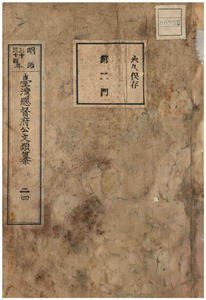 永久保存
第一門
明治
臺灣總督府公文類纂
二四